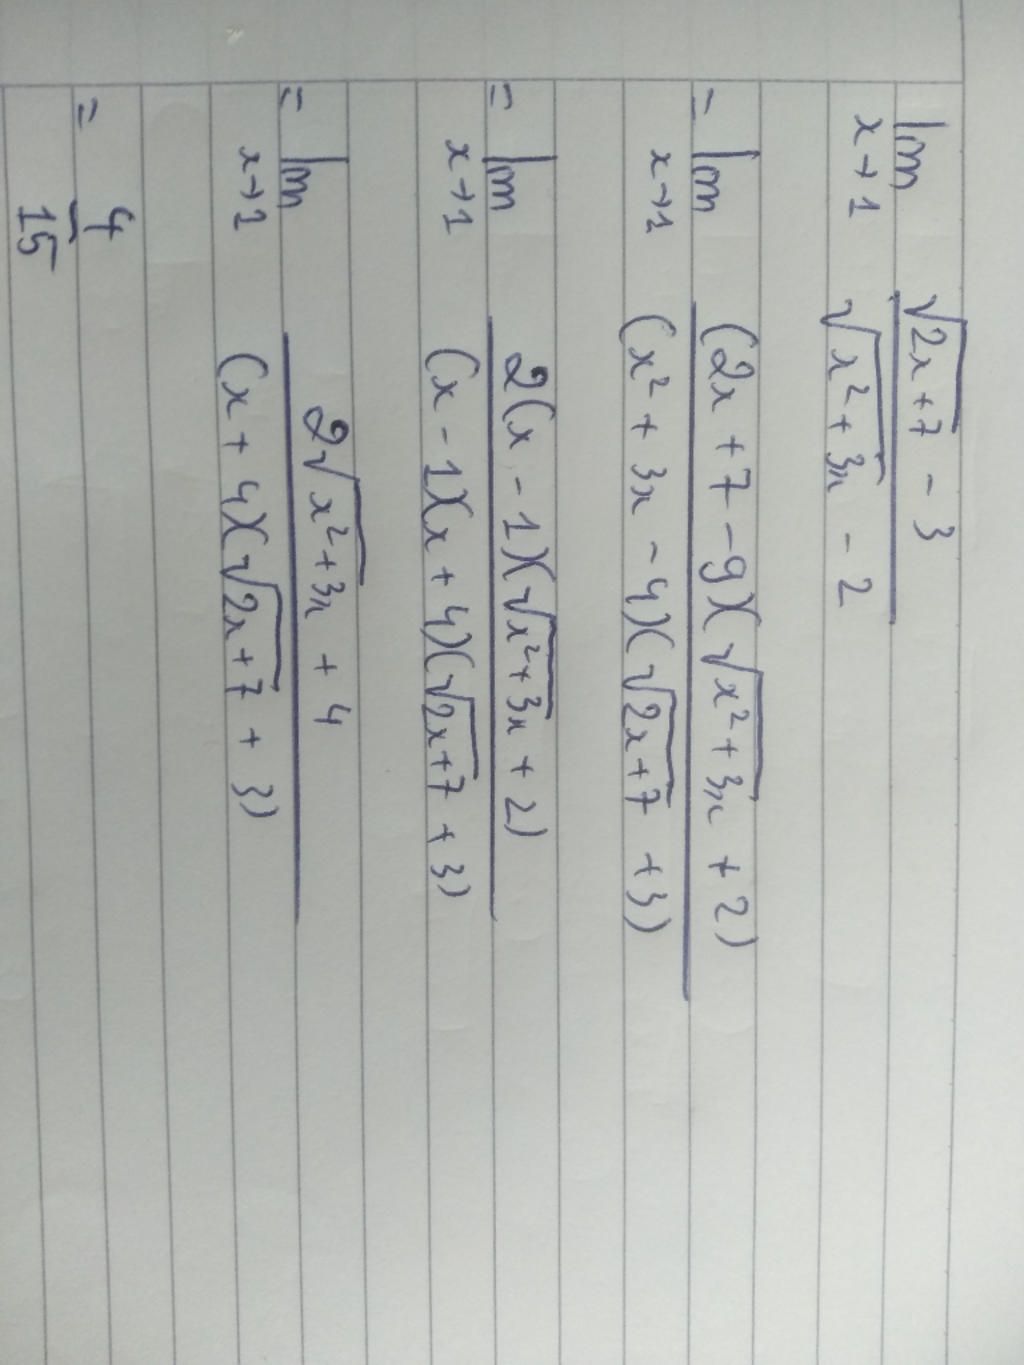 lim x→1 (√(2x+7) - 3) / (√(x²+3x) - 2)
= lim x→1 ((2x+7-9)(√(x²+3x) + 2)) / ((x²+3x-4)(√(2x+7) + 3))
= lim x→1 (2(x-1)(√(x²+3x) + 2)) / ((x-1)(x+4)(√(2x+7) + 3))
= lim x→1 (2√(x²+3x) + 4) / ((x+4)(√(2x+7) + 3))
= 4/15